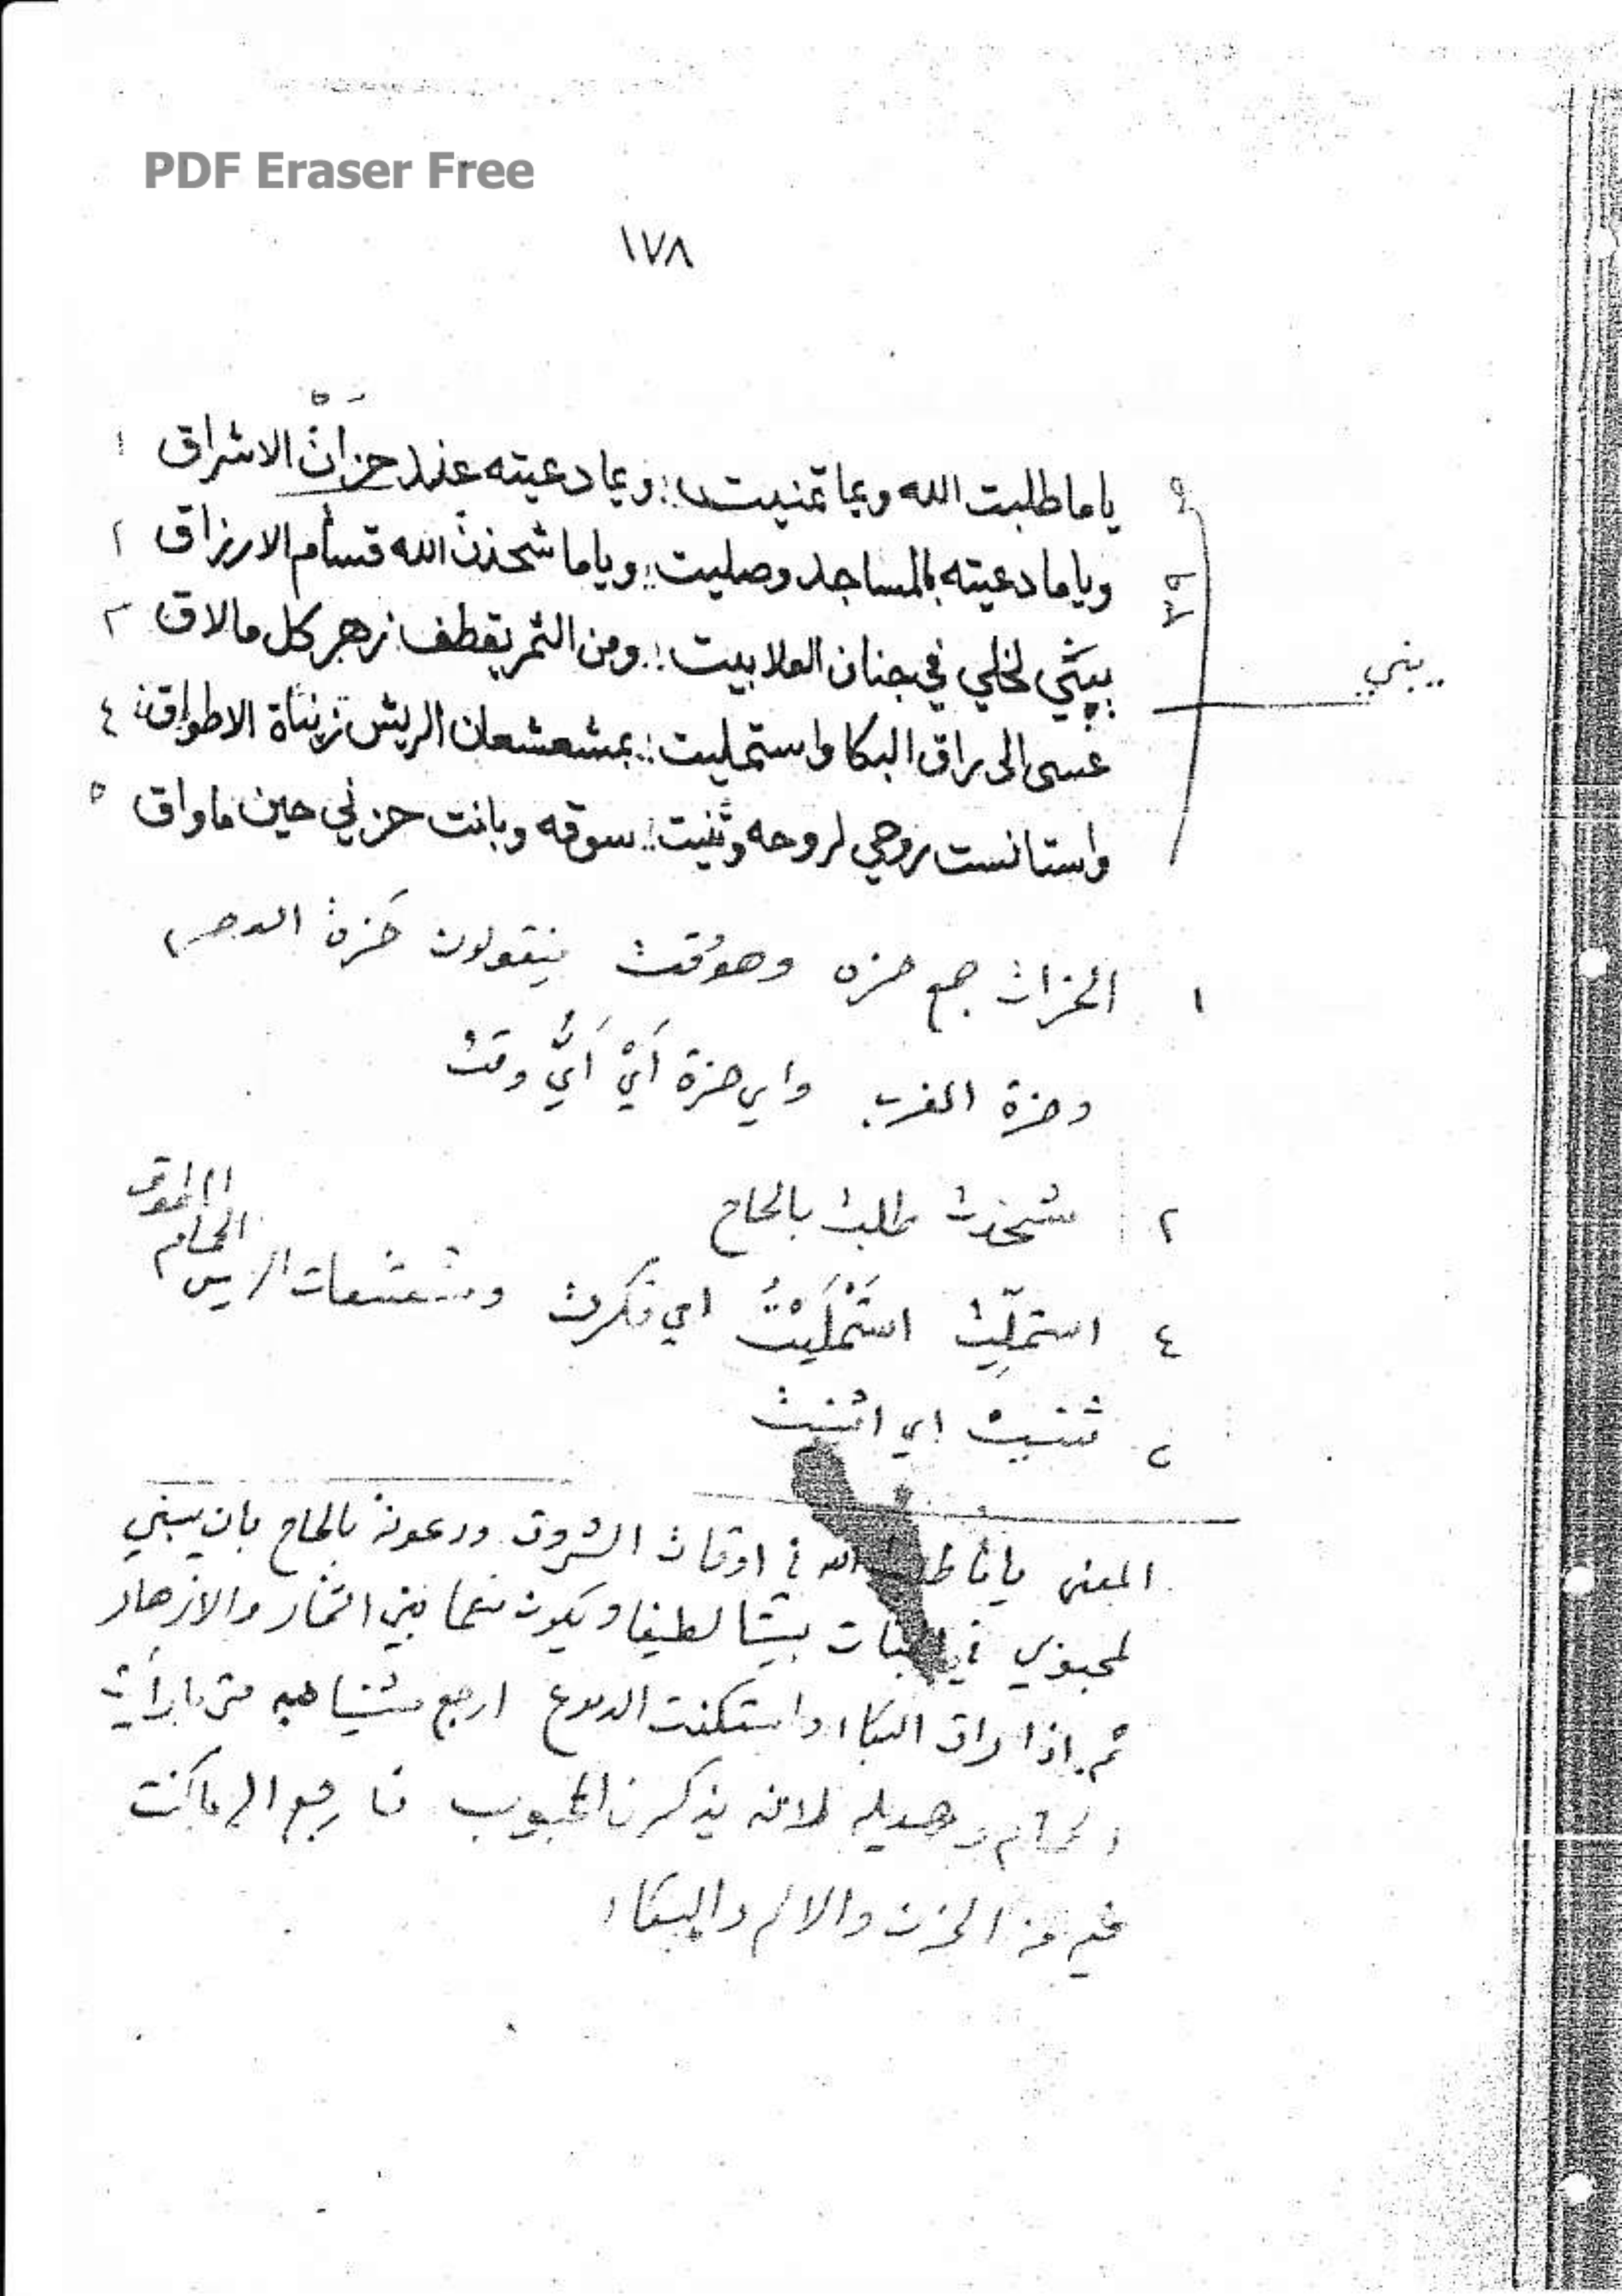 PDF Eraser Free
١٧٨
ياما طلبت الله ويما تمنيت :: ويما دعيته عند حزات الاشراق ١
وياما دعيته بالمساجد وصليت :: وياما شحذت الله قسام الارزاق ٢
يبني لخلي في جنان العلا بيت :: ومن الثمر يقطف زهر كل ما لاق ٣
بني
عسى الى راق البكا واستمليت :: بمشعشعان الريش زيناة الاطواق ٤
واستانست روحي لروحه وثنيت :: سوقه وبانت حزني حين ما واق ٥
١ الحزات جمع حزه وهو وقت فيقولون حزة
وحزة المغرب واي حزة أي أي وقت
٢ شحذت طلبت بالحاح
الحمام
٤ استملّيت استمليت اي فكرت ومشعشعات الريش
ثنيت اي اثنيت
المعنى ياما طلبت الله في اوقات الشروق ودعوته بالحاح بان يبني
لمحبوبي في الجنات بيتا لطيفا ويكون منعما بين الثمار والازهار
ثم اذا راق البكاء واستكنت الدموع ارجع متى ما رأيت
الحمام وهديله لانه يذكرن المحبوب فارجع الى ما كنت
فيه من الحزن والالم والبكاء